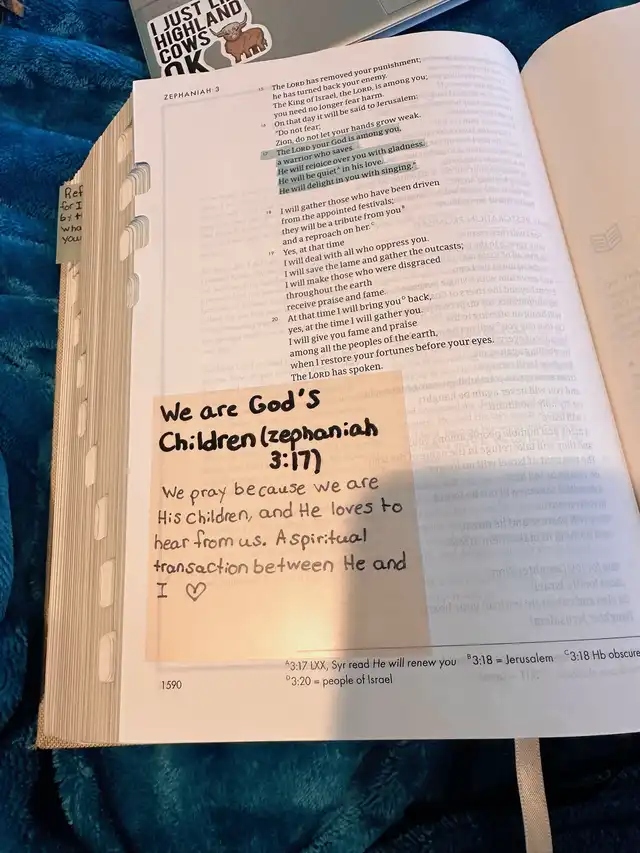 I JUST L
HIGHLAND
COWS
OK
ZEPHANIAH 3
15 The LORD has removed your punishment;
he has turned back your enemy.
The King of Israel, the LORD, is among you;
you need no longer fear harm.
16 On that day it will be said to Jerusalem:
"Do not fear;
Zion, do not let your hands grow weak.
17 The LORD your God is among you,
a warrior who saves.
He will rejoice over you with gladness.
He will be quietᴬ in his love.
He will delight in you with singing."
18 I will gather those who have been driven
from the appointed festivals;
they will be a tribute from youᴮ
and a reproach on her.ᶜ
19 Yes, at that time
I will deal with all who oppress you.
I will save the lame and gather the outcasts;
I will make those who were disgraced
throughout the earth
receive praise and fame.
20 At that time I will bring youᴰ back,
yes, at the time I will gather you.
I will give you fame and praise
among all the peoples of the earth,
when I restore your fortunes before your eyes.
The LORD has spoken.
Ref
for I
by t
wha
you
We are God's
Children (zephaniah
3:17)
We pray because we are
His children, and He loves to
hear from us. A spiritual
transaction between He and
I ♡
ᴬ3:17 LXX, Syr read He will renew you ᴮ3:18 = Jerusalem ᶜ3:18 Hb obscure
ᴰ3:20 = people of Israel
1590